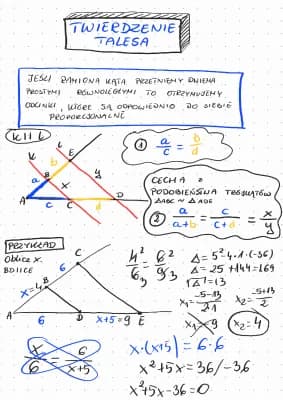 TWIERDZENIE
TALESA
JEŚLI RAMIONA KĄTA PRZETNIEMY DWIEMA
PROSTYMI RÓWNOLEGŁYMI TO OTRZYMUJEMY
ODCINKI, KTÓRE SĄ ODPOWIEDNIO DO SIEBIE
PROPORCJONALNE
K || L
K L E
b y
B
a x
A c C d D
① a/c = b/d
CECHA =
PODOBIEŃSTWA TRÓJKĄTÓW
ΔABC ~ ΔADE
② a/a+b = c/c+d = x/y
PRZYKŁAD
Oblicz x.
BD || CE
C
6
B
x=4
A D E
6 x+5=9
4²/6₃ = 6²/9₃
Δ=5²-4·1·(-36)
Δ=25+144=169
√Δ=13
x₁=-5-13/2·1 x₂=-5+13/2
x₁=-9 x₂=4
x/6 = 6/x+5
x·(x+5)=6·6
x²+5x=36/-36
x²+5x-36=0